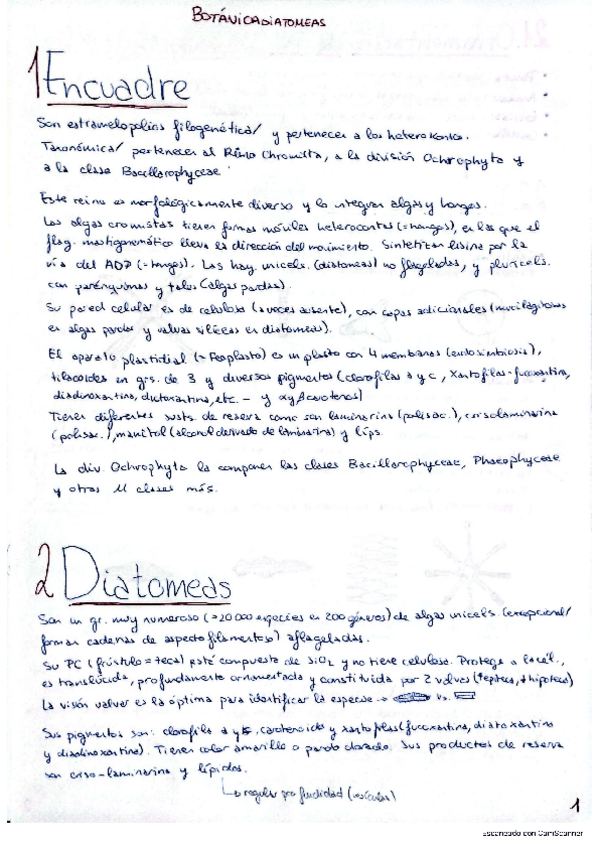 BOTÁNICA DIATOMEAS
1 Encuadre
Son estramenopolios filogenética/ y pertenecen a los heterokontos.
Taxonómica/ pertenecen al Reino Chromista, a la división Ochrophyta y
a la clase Bacillarophyceae.
Este reino es morfológicamente diverso y lo integran algas y hongos.
Las algas cromistas tienen formas móviles heterocontas (=hongos), en las que el
flag. mastigonemático lleva la dirección del movimiento. Sintetizan lisina por la
vía del ADP (=hongos). Las hay unicels. (diatomeas) no flageladas, y pluricels.
con parénquimas y talos (algas pardas).
Su pared celular es de celulosa (a veces ausente), con capas adicionales (mucilaginosas
en algas pardas y valvas silíceas en diatomeas).
El aparato plastidial (= Feoplasto) es un plasto con 4 membranas (endosimbiosis),
tilacoides en grs. de 3 y diversos pigmentos (clorofilas a y c, xantofilas-fucoxantina,
diadinoxantina, diatoxantina, etc. - y carotenos)
Tienen diferentes susts. de reserva como son laminarina (polisac.), crisolaminarina
(polisac.), manitol (alcohol derivado de laminarina) y líps.
La div. Ochrophyta la componen las clases Bacillarophyceae, Phaeophyceae
y otras 11 clases más.
2 Diatomeas
Son un gr. muy numeroso (>20 000 especies en 200 géneros) de algas unicels. (excepcional/
forman cadenas de aspecto filamentoso) aflageladas.
Su PC (frústulo = teca) está compuesta de SiO2 y no tiene celulosa. Protege a la cél.,
es translúcida, profundamente ornamentada y constituida por 2 valvas (↑epiteca, ↓hipoteca)
La visión valvar es la óptima para identificar la especie → vs.
Sus pigmentos son: clorofila a y c, carotenoides y xantofilas (fucoxantina, diatoxantina
y diadinoxantina). Tienen color amarillo o pardo dorado. Sus productos de reserva
son criso-laminarina y lípidos.
↳ regular profundidad (vesículas)
1
Escaneado con CamScanner